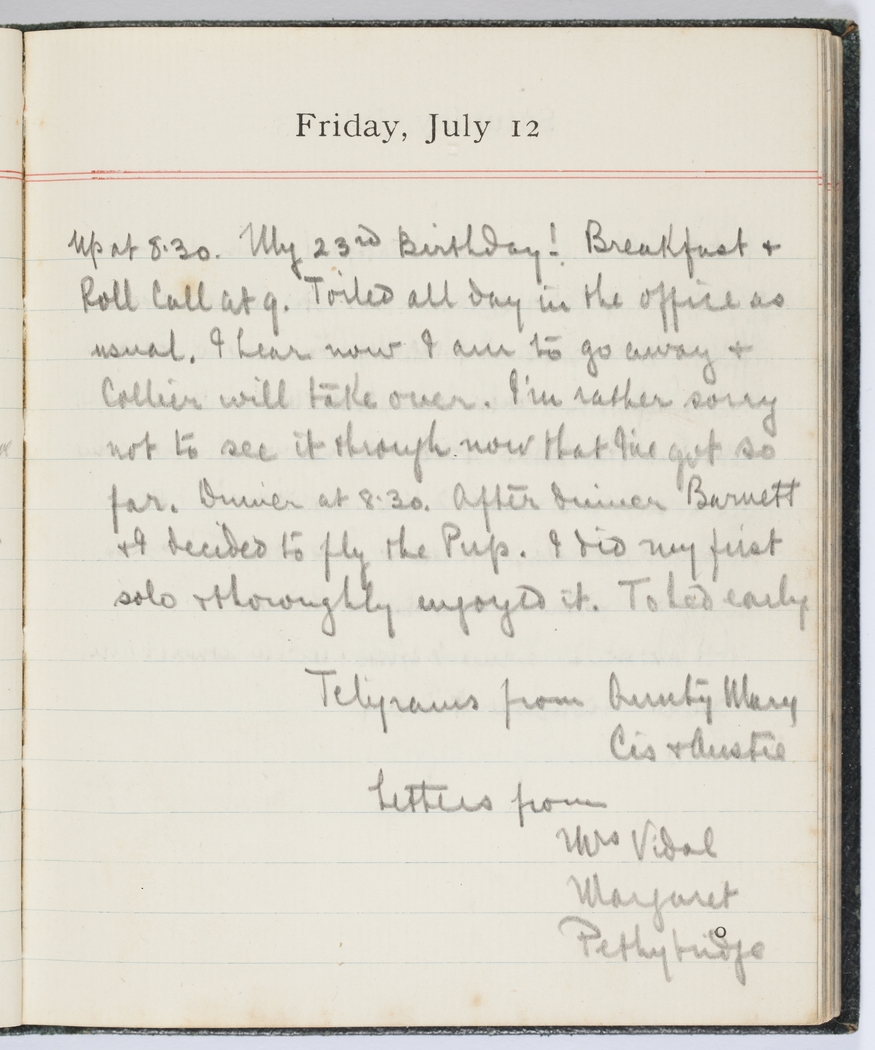 Friday, July 12
Up at 8.30. My 23rd Birthday! Breakfast +
Roll Call at 9. Toiled all day in the office as
usual. I hear now I am to go away +
Collier will take over. I'm rather sorry
not to see it through now that I've got so
far. Dinner at 8.30. After dinner Barnett
+ I decided to fly the Pup. I did my first
solo + thoroughly enjoyed it. To bed early
Telegrams from Aunty Mary
Cis + Austie
Letters from
Mrs Vidal
Margaret
Pethybridge